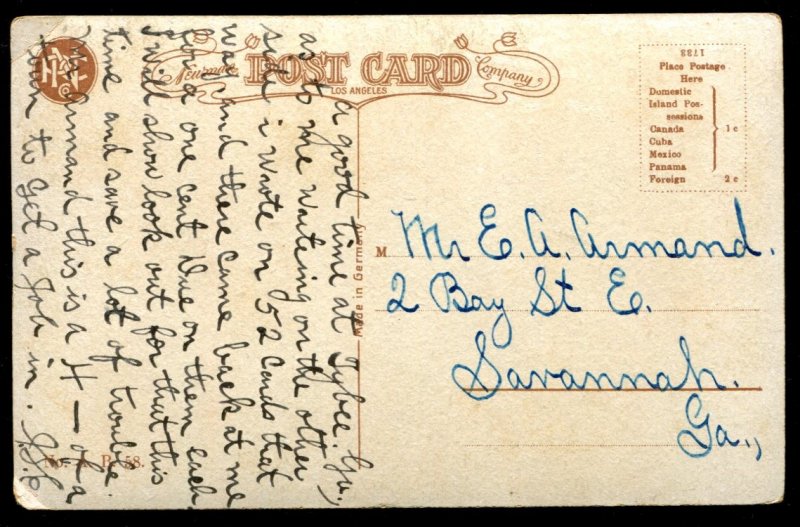 Newman POST CARD Company
LOS ANGELES
1733
Place Postage
Here
Domestic
Island Pos-
sessions
Canada
Cuba
Mexico
Panama
1c
Foreign 2c
Made in Germany
M
Mr E. A. Armand.
2 Bay St E.
Savannah.
Ga.,
a good time at Tybee. Ga.,
as to me waiting on the other
side i wrote on 52 cards that
way and there came back at me
for a one cent Due on them each
I will show look out for that this
time and save a lot of trouble.
Mr Armand this is a H— of a
town to get a job in.
No. A. P. 58.